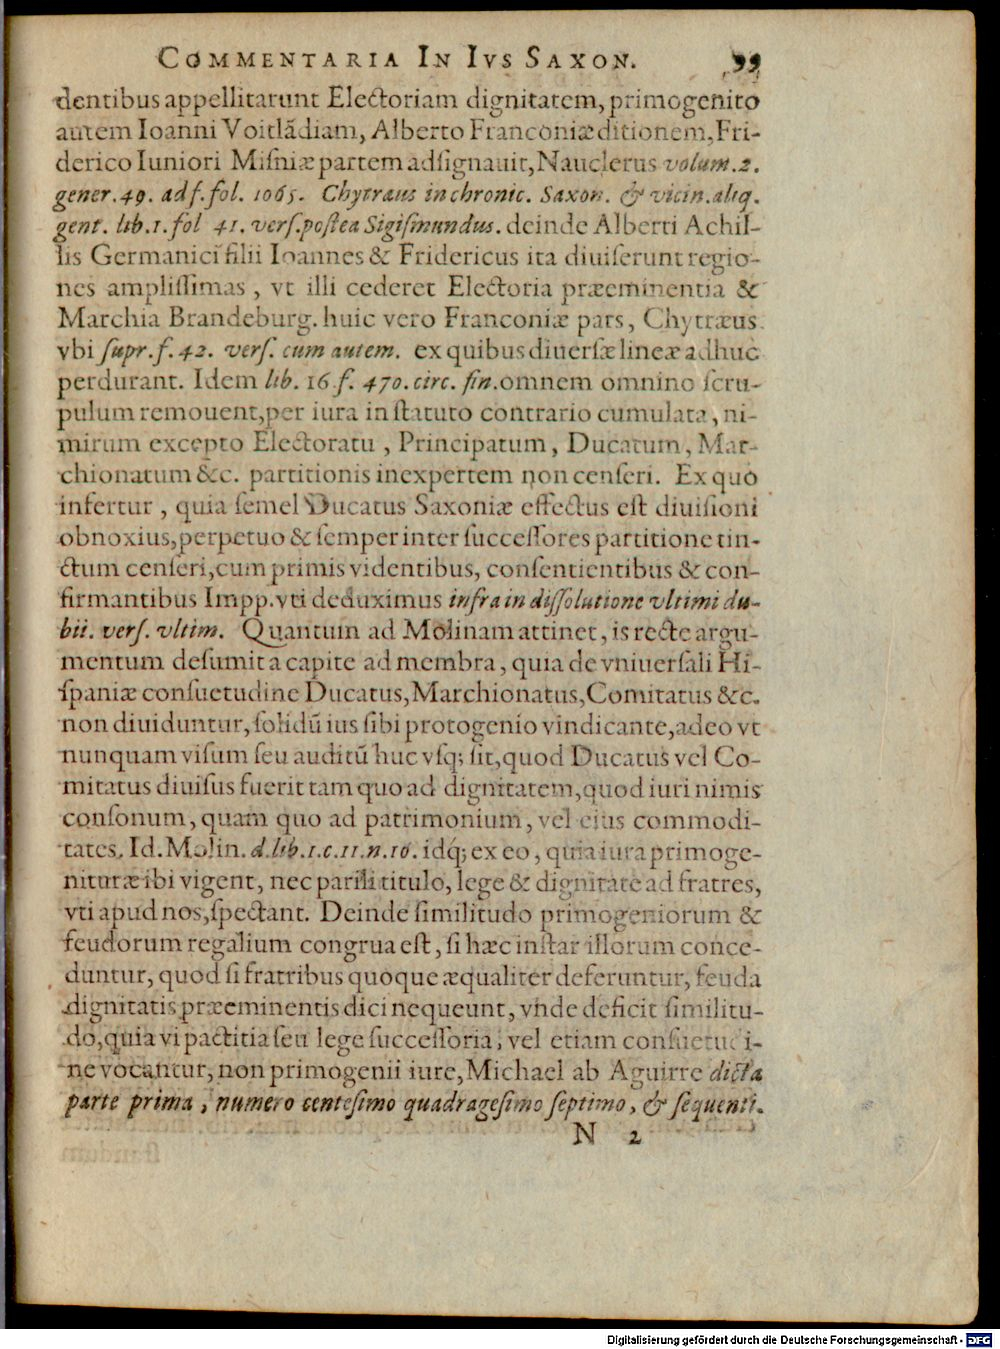 COMMENTARIA IN IVS SAXON. 99
dentibus appellitarunt Electoriam dignitatem, primogenito
autem Ioanni Voitlãdiam, Alberto Franconiæ ditionem, Fri-
derico Iuniori Misniæ partem adsignauit, Nauclerus volum. 2.
gener. 49. ad f. fol. 1065. Chytræus in chronic. Saxon. & vicin. aliq.
gent. lib. 1. fol 41. vers. postea Sigismundus. deinde Alberti Achil-
lis Germanici filii Ioannes & Fridericus ita diuiserunt regio-
nes amplissimas, vt illi cederet Electoria præeminentia &
Marchia Brandeburg. huic vero Franconiæ pars, Chytræus
vbi supr. f. 42. vers. cum autem. ex quibus diuersæ lineæ adhuc
perdurant. Idem lib. 16 f. 470. circ. fin. omnem omnino scru-
pulum remouent, per iura in statuto contrario cumulata, ni-
mirum excepto Electoratu, Principatum, Ducatum, Mar-
chionatum &c. partitionis inexpertem non censeri. Ex quo
infertur, quia semel Ducatus Saxoniæ effectus est diuisioni
obnoxius, perpetuo & semper inter successores partitione tin-
ctum censeri, cum primis videntibus, consentientibus & con-
firmantibus Impp. vti deduximus infra in dissolutione vltimi du-
bii. vers. vltim. Quantum ad Molinam attinet, is recte argu-
mentum desumit a capite ad membra, quia de vniuersali Hi-
spaniæ consuetudine Ducatus, Marchionatus, Comitatus &c.
non diuiduntur, solidũ ius sibi protogenio vindicante, adeo vt
nunquam visum seu auditũ huc vsq; sit, quod Ducatus vel Co-
mitatus diuisus fuerit tam quo ad dignitatem, quod iuri nimis
consonum, quam quo ad patrimonium, vel eius commodi-
tates. Id. Molin. d. lib. 1. c. 11. n. 16. idq; ex eo, quia iura primoge-
nituræ ibi vigent, nec parili titulo, lege & dignitate ad fratres,
vti apud nos, spectant. Deinde similitudo primogeniorum &
feudorum regalium congrua est, si hæc instar illorum conce-
duntur, quod si fratribus quoque æqualiter deferuntur, feuda
dignitatis præeminentis dici nequeunt, vnde deficit similitu-
do, quia vi pactitia seu lege successoria, vel etiam consuetudi-
ne vocantur, non primogenii iure, Michael ab Aguirre dicta
parte prima, numero centesimo quadragesimo septimo, & sequenti.
N 2
Digitalisierung gefördert durch die Deutsche Forschungsgemeinschaft - DFG